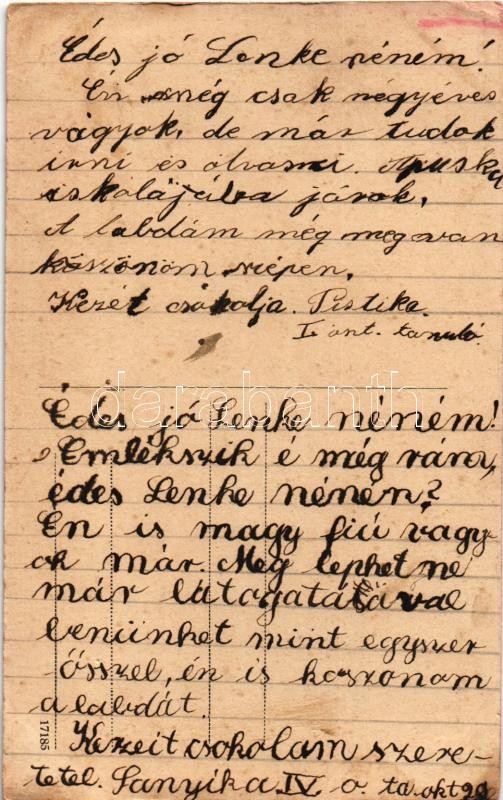 Édes jó Lenke néném!
Én még csak négyéves
vagyok, de már tudok
irni és olvasni. Apuska
iskolájába járok.
A labdám még megvan
köszönöm szépen,
Kezét csókolja. Pistika.
I ont. tanuló
darabanth
Édes jó Lenke néném!
Emlékszik é még rám,
édes Lenke néném?
Én is nagy fiú vagy
ok már. Meg lephetne
már látogatátával
benünket mint egyszer
ősszel, én is koszonom
a labdát.
Kezeit csokolam szere-
tetel. Sanyika IV o. ta. okt 29
17185